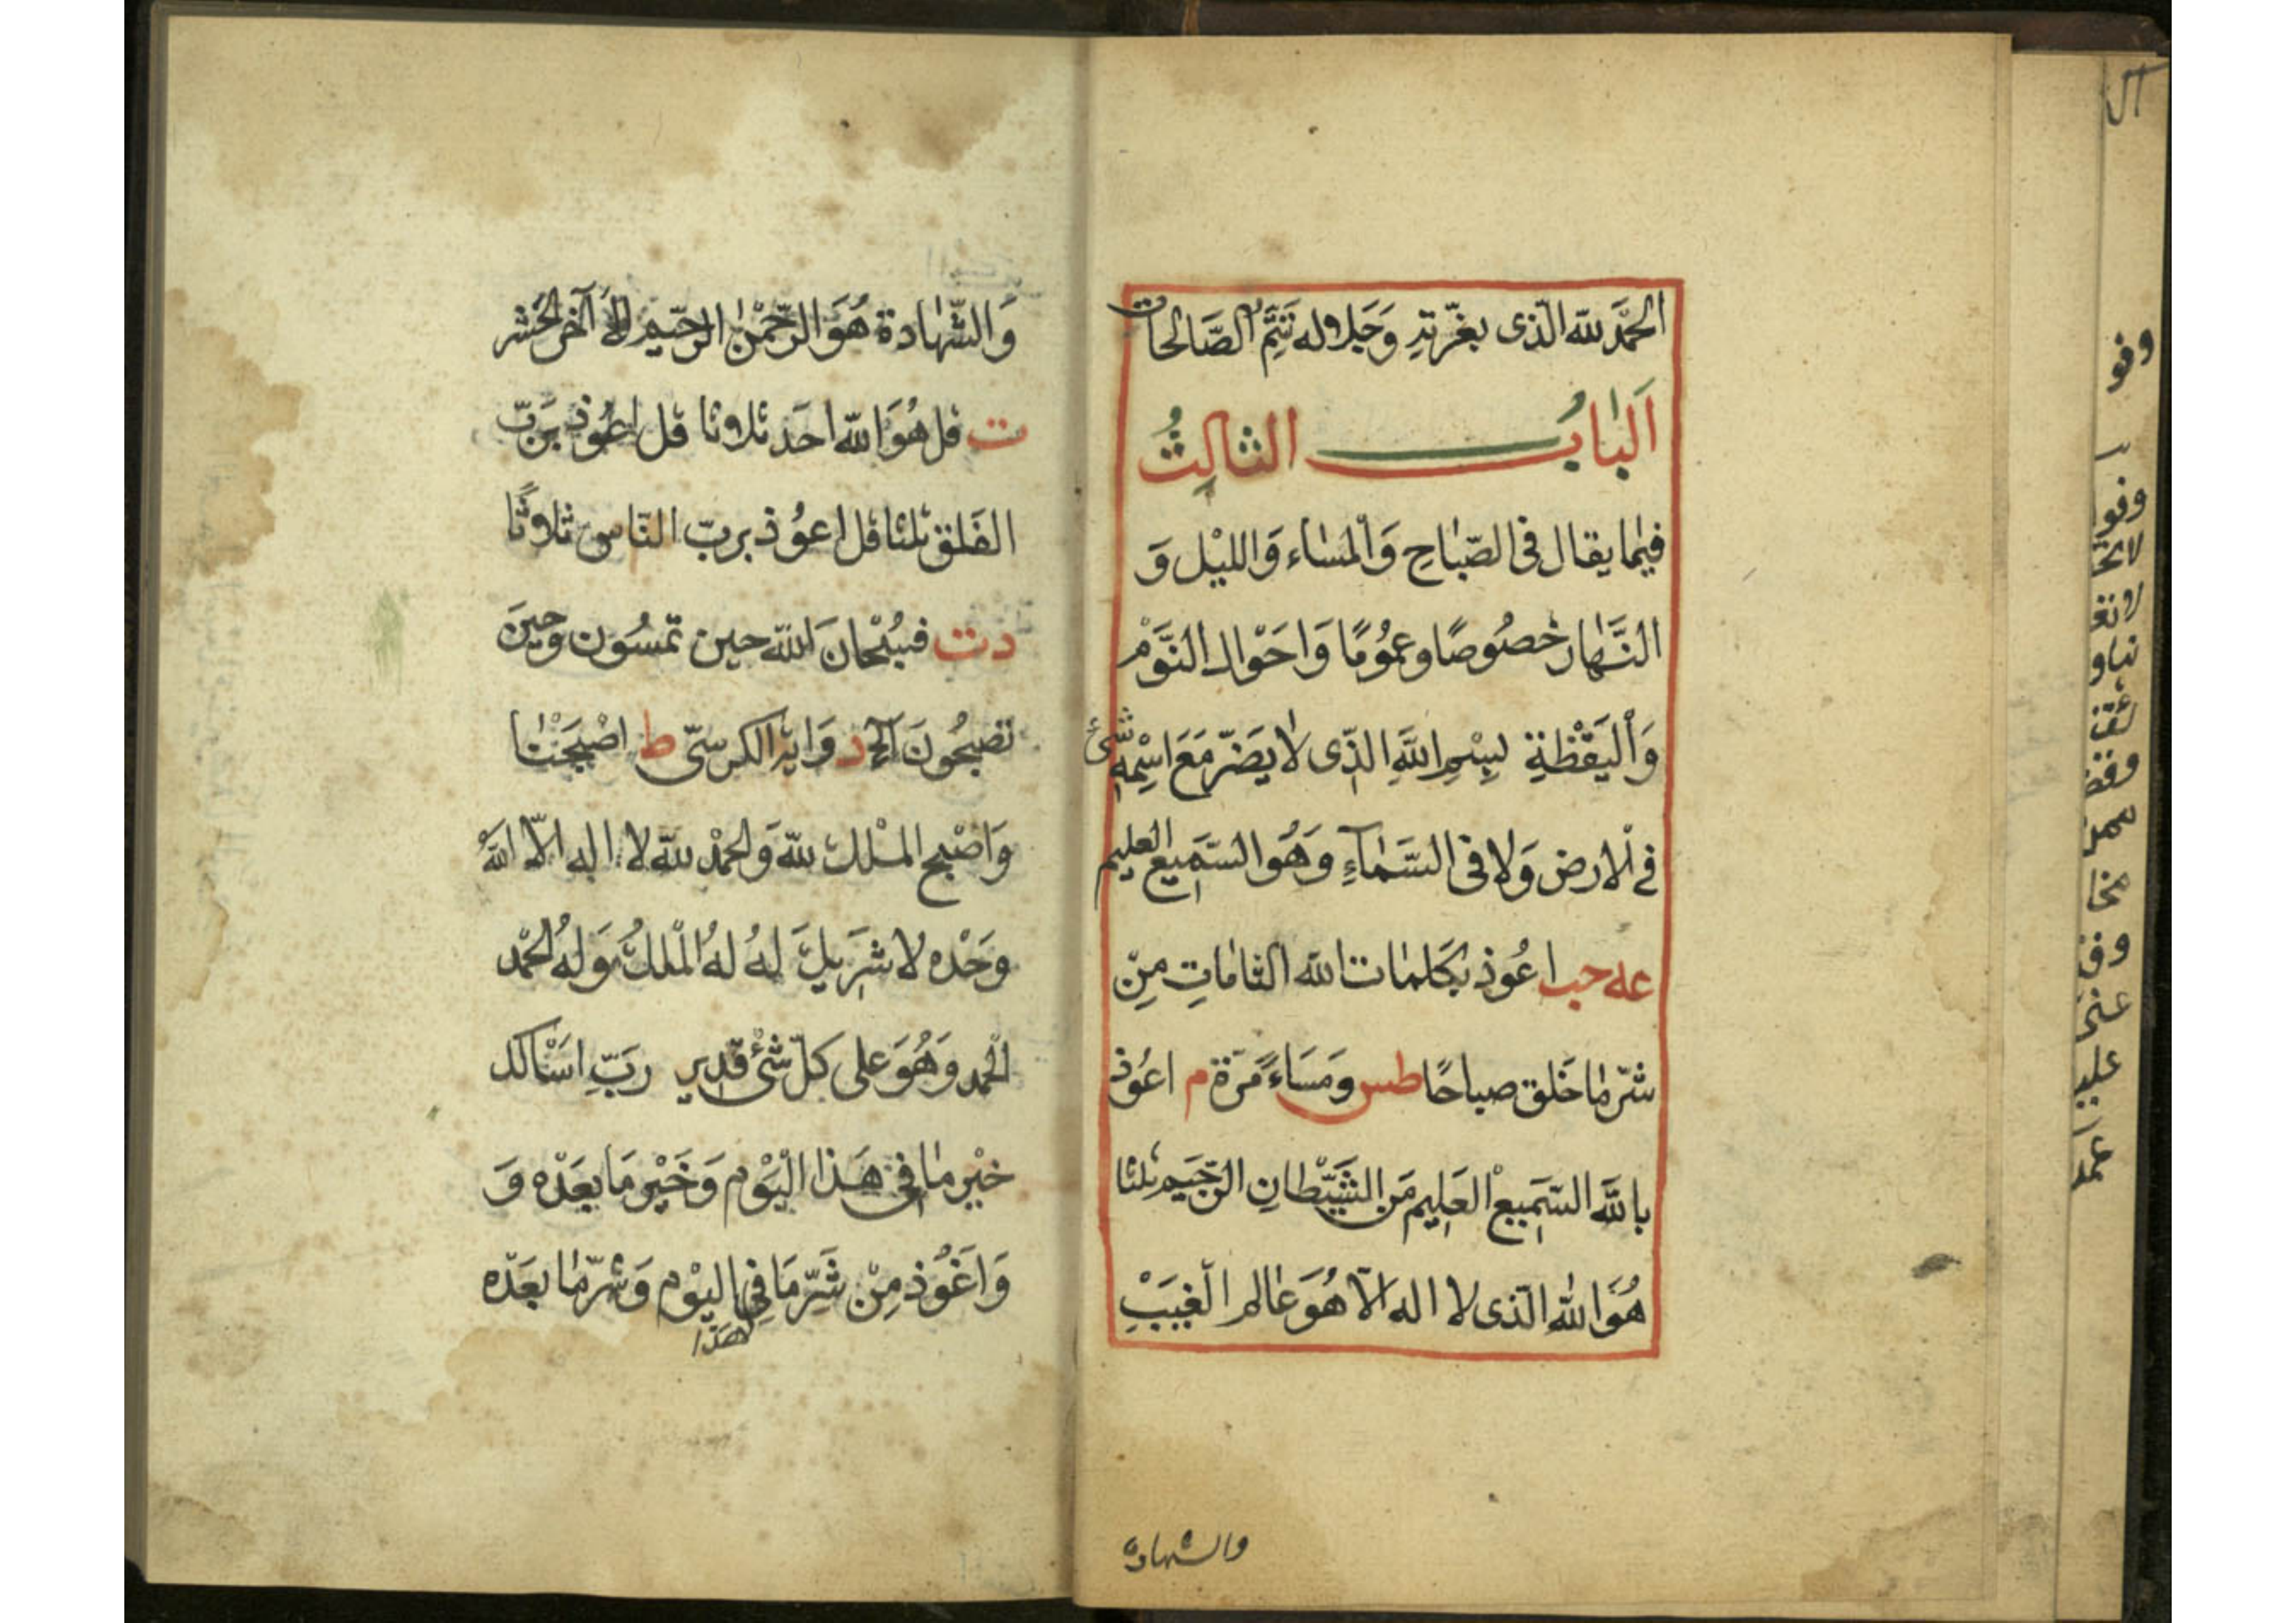 الحَمْدَ للّه الّذى بعزّتِهِ وَجَلاله تَتِمُّ الصَّالحَات
اَلبَابُ الثالِثُ
فيمَا يقال فى الصّبَاحِ وَالْمسَاء وَالليْل وَ
النَّهَار خصُوصًا وعمُومًا وَاحَوْال النَّوْم
وَالْيَقْظةِ لبِسْمِ اللَّهِ الذّى لا يَضَرّ مَعَ اسْمِهِ شئ
فى الارض وَلا فى السَّمَآءِ وَهُو السّمَيع العليم
عه حب اعُوذ بكَلمَات اللّه التامَاتِ مِنْ
شرّ مَا خَلق صباحًا طس وَمَسَاءً مَرّة م اعُوذ
باللَّه السّمَيعْ العَلِيم مَن الشَيْطانِ الرّجَيم ثلثا
هُوَ اللّه الّذى لا اله الّا هُوَ عَالم الغَيبَْ
والشهادة
وَ الشّهَادة هُوَ الرّحَمْن الرحَيم الاَ آخر الحَشر
ت قل هُوَ اللّه احَد ثلاوثا قل اعُوذ برَبّ
الفَلق ثلثا قل اعوُذ بربّ النّاس ثلاوثًا
دت فسُبْحَانَ اللّه حين تمسُون وحِينَ
تصبحُونَ آلخ د وَاية الكرسىّ ط اصْبَحَنْا
وَاصْبح المْلك للّه وَالحمْد للّه لا اله الّا اللَّه
وَحْده لا شَريكَ لهُ لهُ المْلكُ وَلهُ الحْمد
الْحمد وَهُوَ على كلّ شئْ قدير ربّ اسَْالك
خيْر مَا فى هَذا اليَوْم وَخَيْر مَا بعَدْه وَ
وَاعَُوذ مِنْ شَرّ مَا فِى اليوْم وَشرّ مَا بعَدْه
هَذا